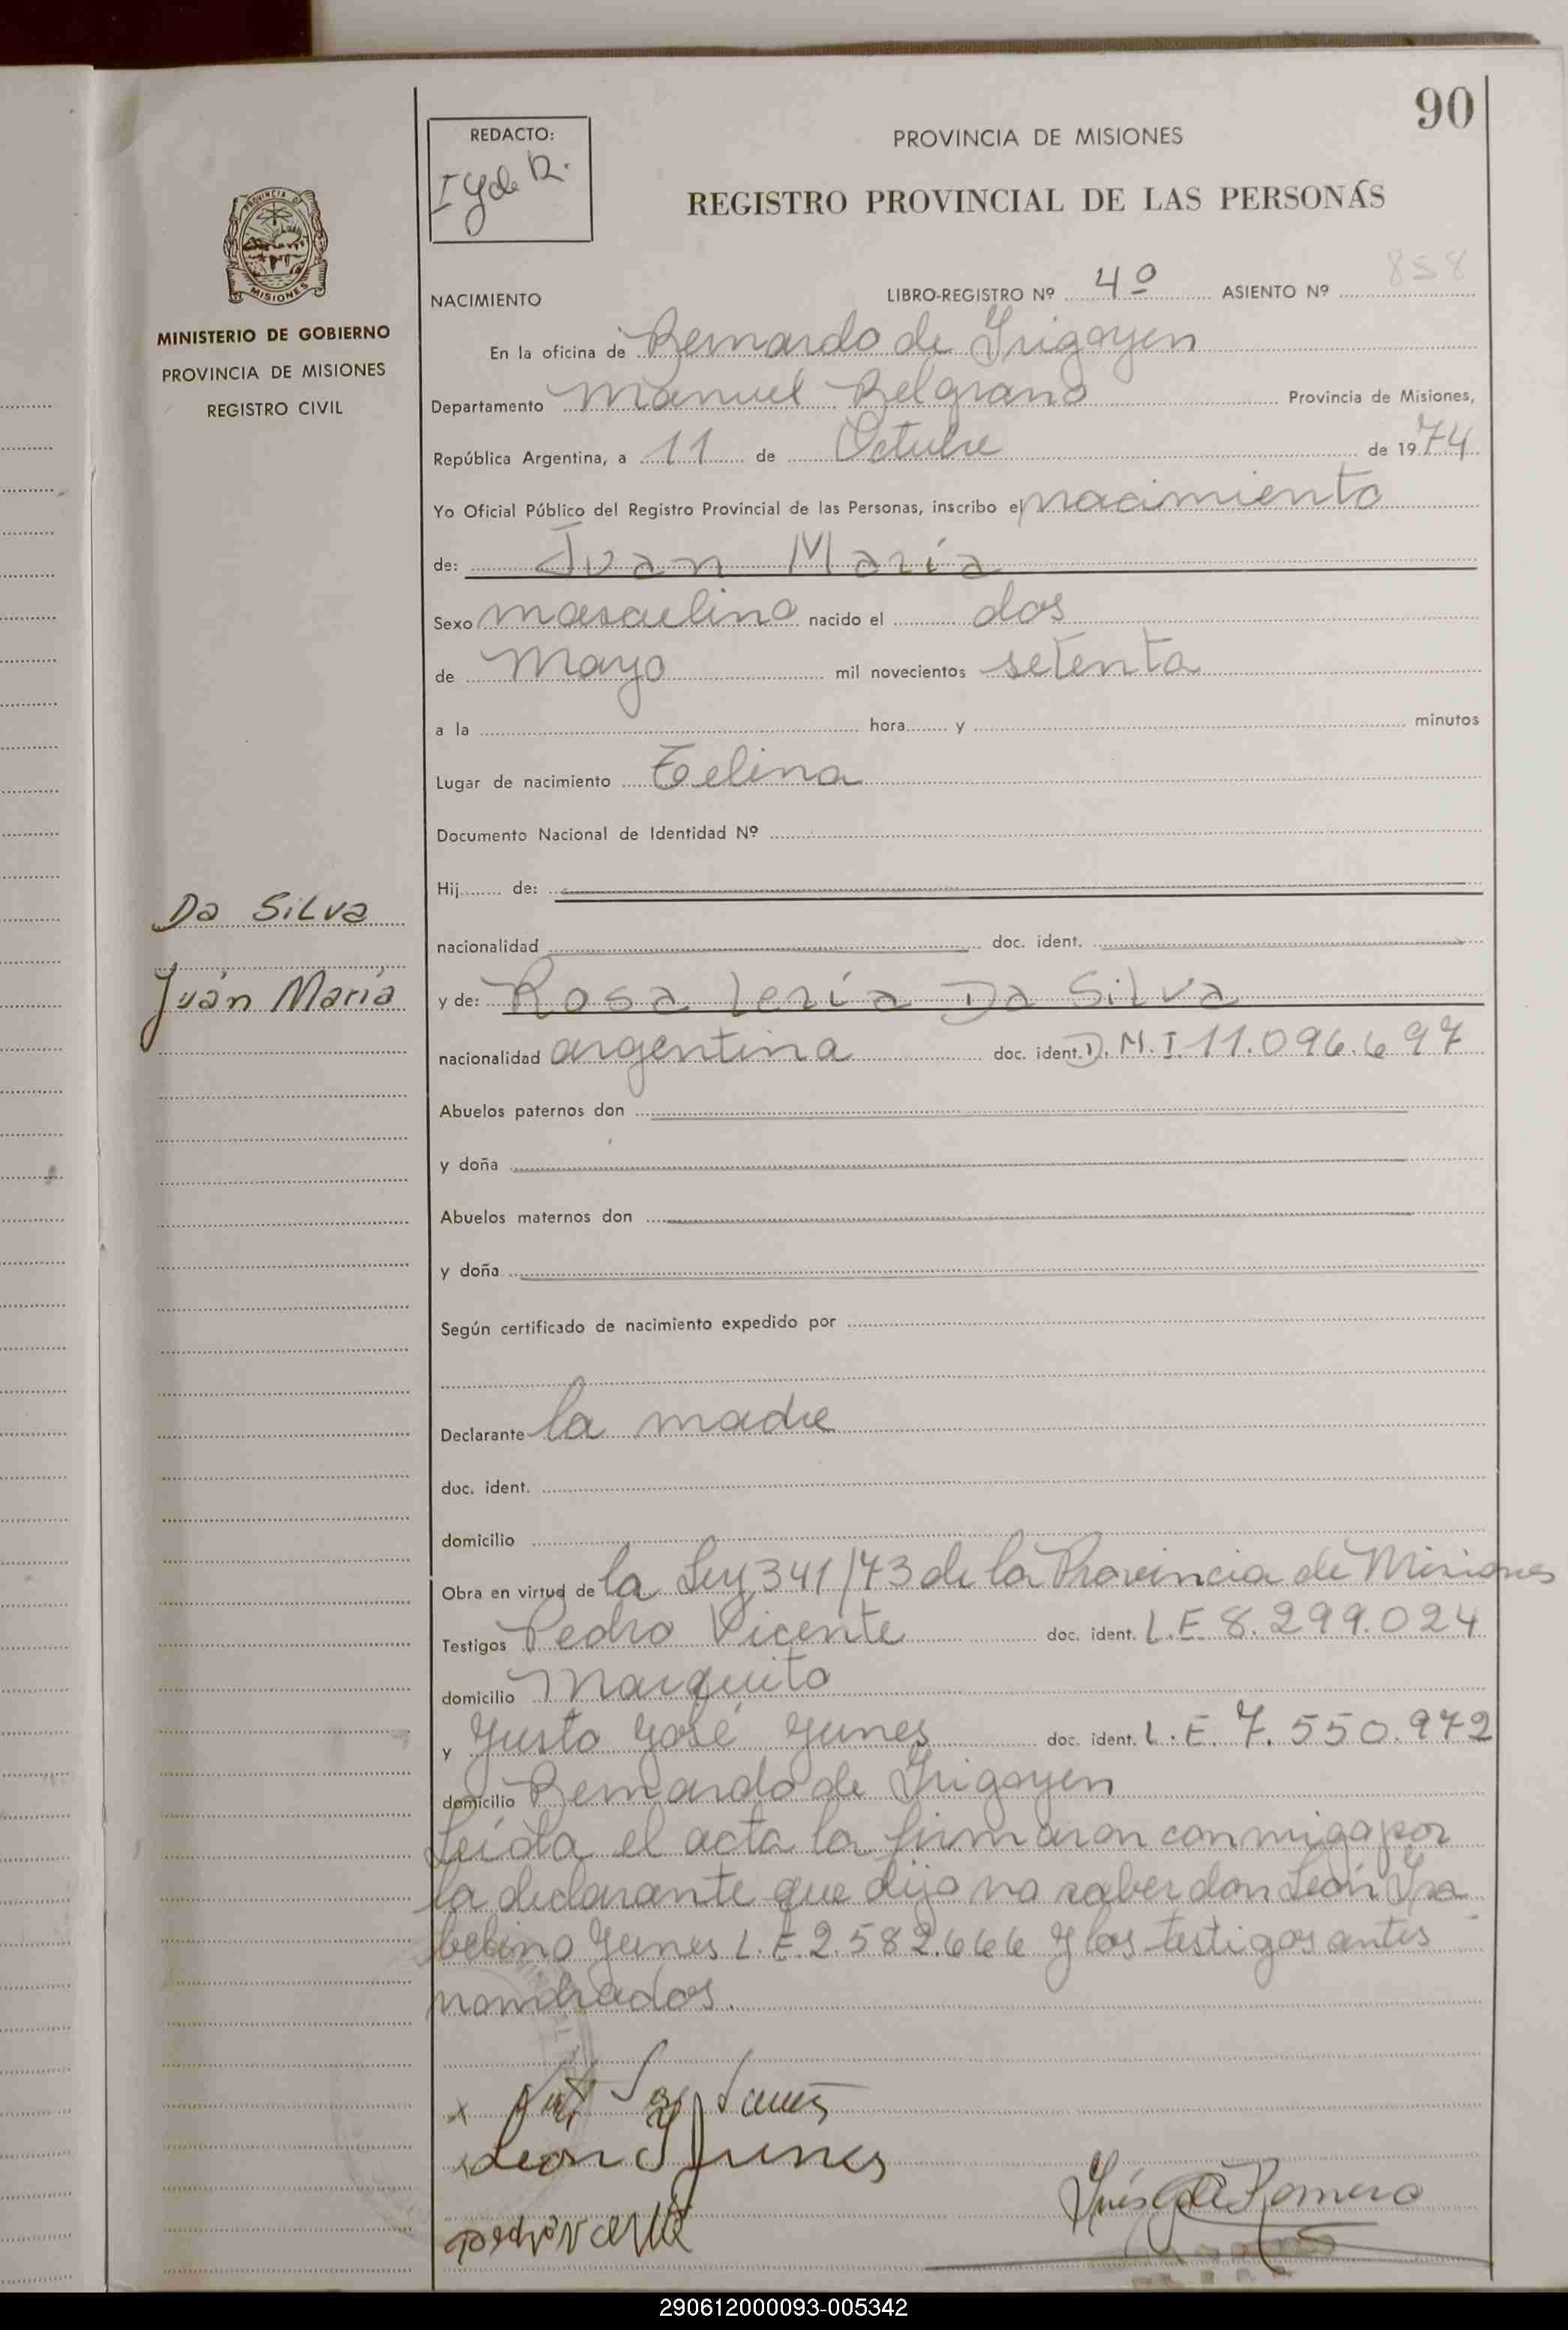 90
REDACTO:
I G de R.
PROVINCIA DE MISIONES
REGISTRO PROVINCIAL DE LAS PERSONAS
PROVINCIA DE
MISIONES
MINISTERIO DE GOBIERNO
PROVINCIA DE MISIONES
REGISTRO CIVIL
NACIMIENTO LIBRO-REGISTRO Nº 4º ASIENTO Nº 858
En la oficina de Bernardo de Irigoyen
Departamento Manuel Belgrano Provincia de Misiones,
República Argentina, a 11 de Octubre de 1974
Yo Oficial Público del Registro Provincial de las Personas, inscribo el nacimiento
de: Juan María
Sexo masculino nacido el dos
de Mayo mil novecientos setenta
a la hora y minutos
Lugar de nacimiento
Documento Nacional de Identidad Nº
Hij de:
Da Silva
nacionalidad doc. ident.
Juan María
y de: Rosa Leria Da Silva
nacionalidad argentina doc. ident. D.N.I. 11.096.697
Abuelos paternos don
y doña
Abuelos maternos don
y doña
Según certificado de nacimiento expedido por
Declarante la madre
doc. ident.
domicilio
Obra en virtud de la Ley 341/73 de la Provincia de Misiones
Testigos Pedro Vicente doc. ident. L.E. 8.299.024
domicilio Marquito
y Justo José Yunes doc. ident. L.E. 7.550.972
domicilio Bernardo de Irigoyen
Leída el acta la firmaron conmigo por
la declarante que dijo no saber don León Isa
belino Yunes L.E. 2.582.666 y los testigos antes
nombrados.
x
León I Yunes
Inés G de Romero
pedro vicente
290612000093-005342